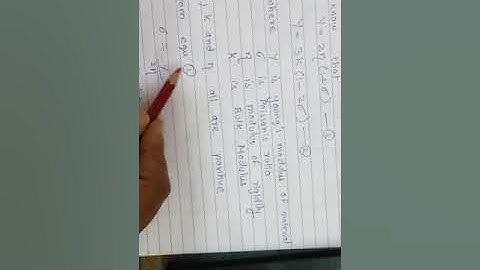 know that
Y = 2η (1+σ) — ①
Y = 3k (1 - 2σ) — ②
where Y is young's modulus of material
σ is Poisson's ratio
η is modulus of rigidity
k is Bulk Modulus
, k and η all are positive
equn ①
σ = Y
2η